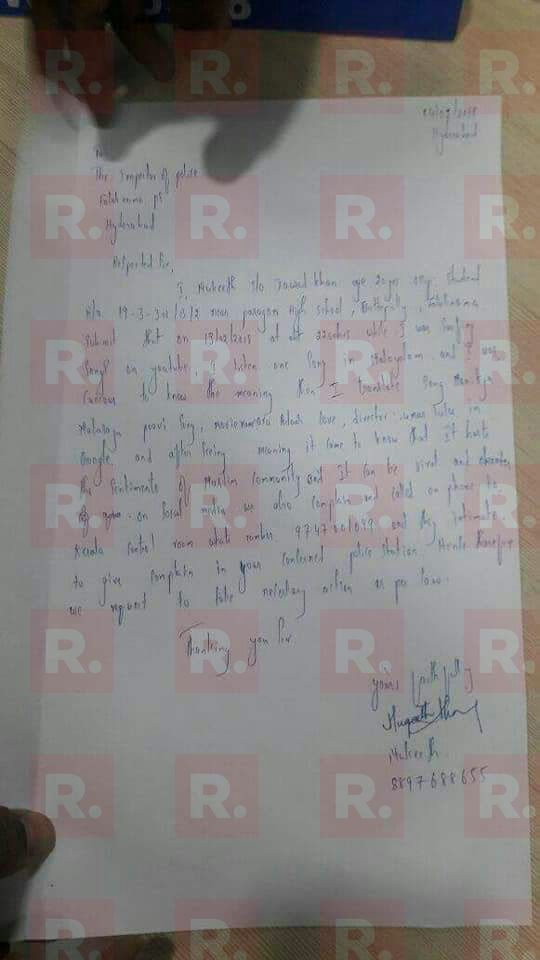 Hyderabad
To
The Inspector of police
Falaknuma PS
Hyderabad
Respected Sir,
I, Mukeeth S/o Jawad Khan age 20 yrs occ, Student
R/o 19-3-3 near paragon high school, , Falaknuma
Submit that on 13/02/2018 at at 22 while I was Surfing
Songs on youtube, I listen one Song in Malayalam and I was
Curious to know the meaning then I translate Song Manikya
Malaraya poovi Song, movie Adaar love, director umar lulu in
Google and after seeing meaning it came to know that It hurts
the Sentiments of Muslim community and It can be viral and
on Social media we also Complain and called on phone to
Kerala Control room number 9747001099 and they intimate
to give Complain in your Concerned police station Hence therefore
we request to take necessary action as per law.
Thanking you Sir
yours faithfully
Mukeeth
8897688655
R.